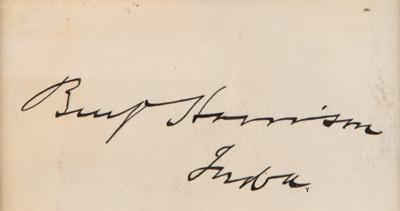 Benj Harrison
Inda.